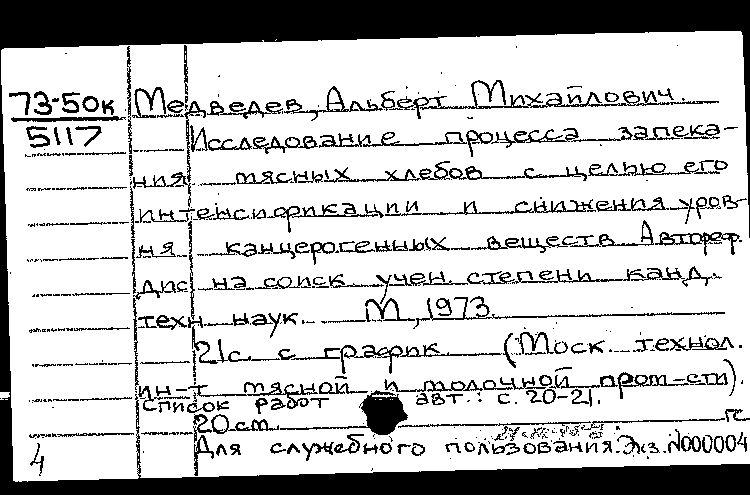 73-50к Медведев, Альберт Михайлович.
5117 Исследование процесса запека-
ния мясных хлебов с целью его
интенсификации и снижения уров-
ня канцерогенных веществ Автореф.
дис на соиск учен. степени канд.
техн наук. М, 1973.
21с. с график. (Моск. технол.
ин-т мясной и молочной пром-сти).
Список работ авт.: с. 20-21.
20см. гс
Для служебного пользования. Экз. №000004
4